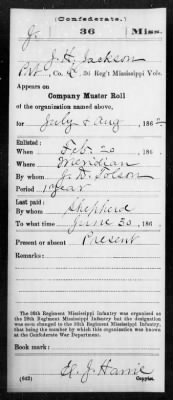 (Confederate.)
J 36 Miss.
J. H. Jackson
Pvt, Co. K, 36 Reg't Mississippi Vols.
Appears on
Company Muster Roll
of the organization named above,
for July & Aug, 1862
Enlisted:
When Feb. 20, 186
Where Meridian
By whom J. D. Tolson
Period 1 year
Last paid:
By whom Shepherd
To what time June 30, 186
Present or absent Present
Remarks:
The 36th Regiment Mississippi Infantry was organized as
the 29th Regiment Mississippi Infantry but the designation
was soon changed to the 36th Regiment Mississippi Infantry,
that being the number by which this organization was known
at the Confederate War Department.
Book mark:
(642) J. Harrie
Copyist.